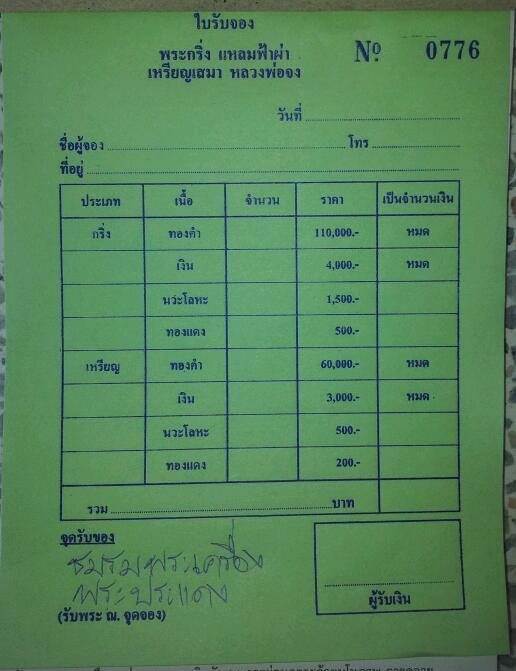 ใบรับจอง
พระกริ่ง แหลมฟ้าผ่า
เหรียญเสมา หลวงพ่อจง
Nº 0776
วันที่
ชื่อผู้จอง โทร
ที่อยู่
ประเภท เนื้อ จำนวน ราคา เป็นจำนวนเงิน
กริ่ง ทองคำ 110,000.- หมด
เงิน 4,000.- หมด
นวะโลหะ 1,500.-
ทองแดง 500.-
เหรียญ ทองคำ 60,000.- หมด
เงิน 3,000.- หมด
นวะโลหะ 500.-
ทองแดง 200.-
รวม บาท
จุดรับของ
ชมรมพระเครื่อง
พระประแดง
(รับพระ ณ. จุดจอง)
ผู้รับเงิน